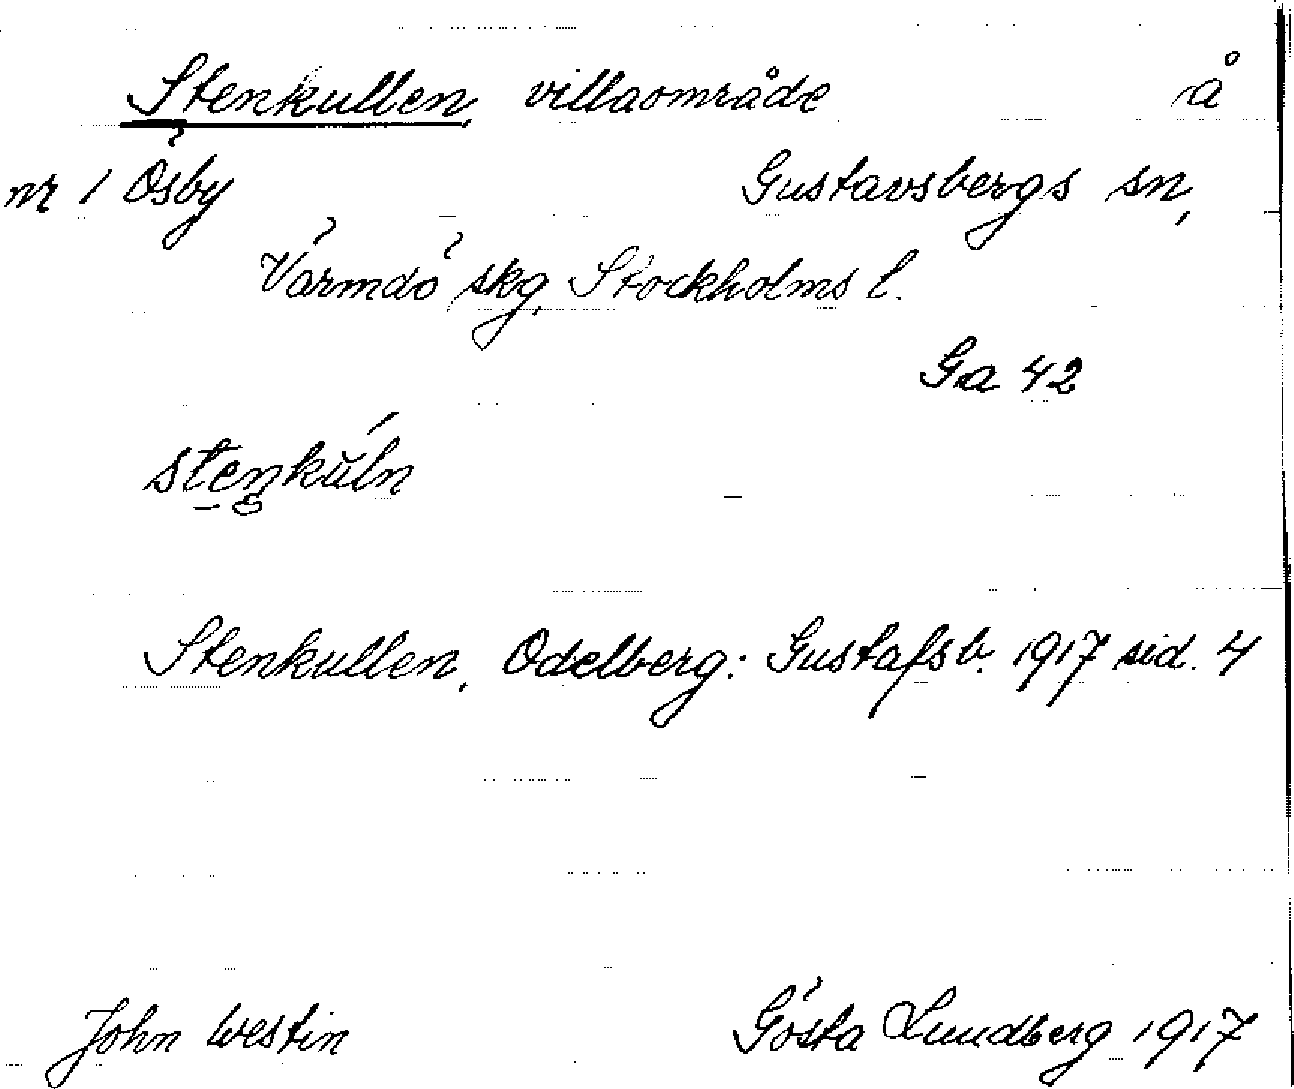 Stenkullen, villaområde å
nr 1 Ösby Gustavsbergs sn,
Värmdö skg, Stockholms l.
Ga 42
stenkúln
Stenkullen, Odelberg: Gustafsb. 1917 sid. 4
John Westin Gösta Lundberg 1917